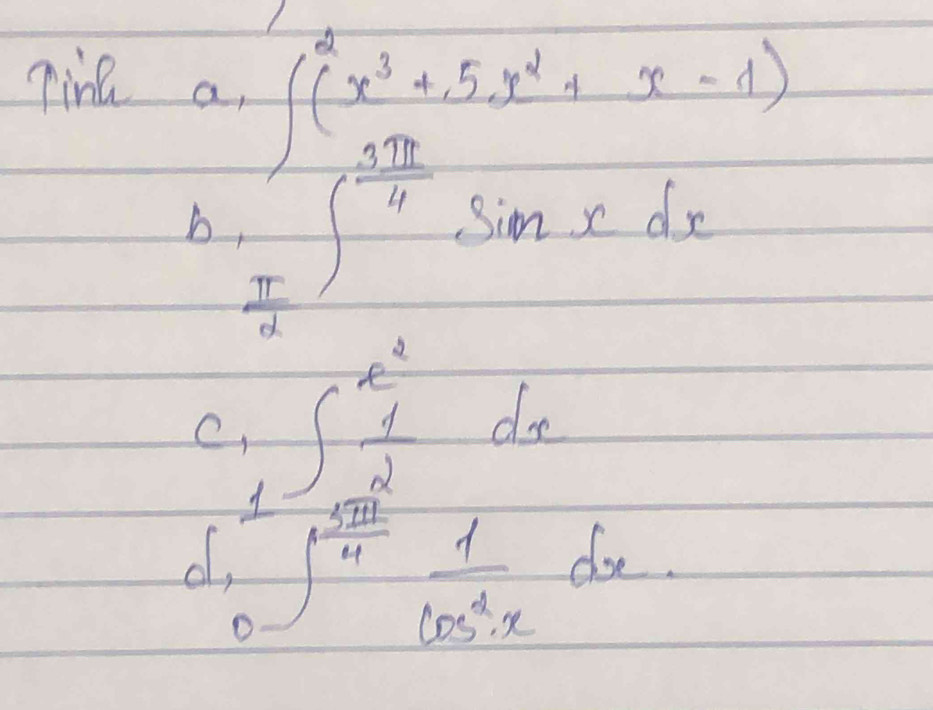 Tính a, ∫² (x³ + 5x² + x - 1)
b, ∫_{π/2}^{3π/4} Sin x dx
c, ∫_1^{e²} 1/2 dx
d, ∫_0^{3π/4} 1/cos².x dx.